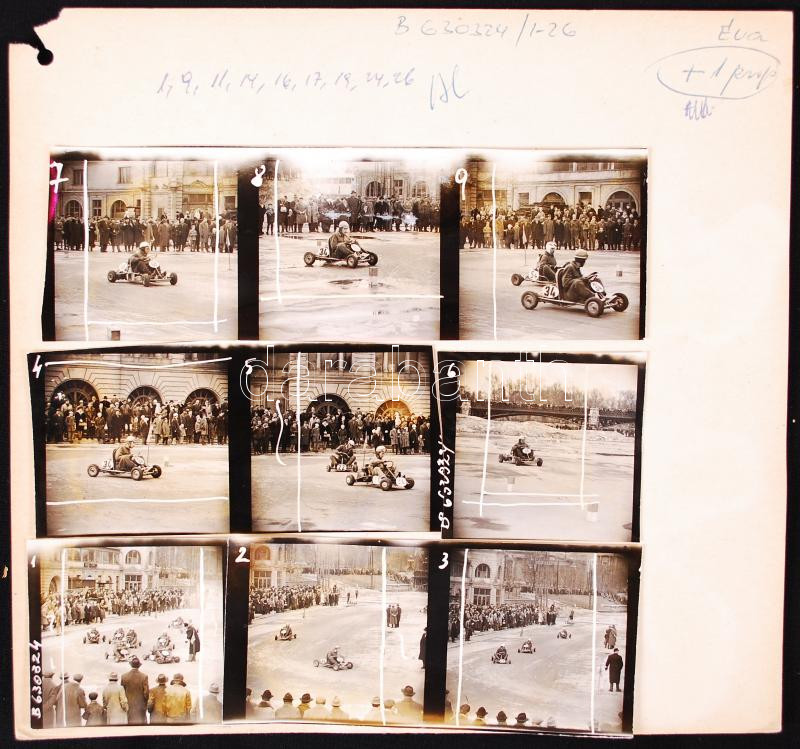 B 630324/1-26
Éva
1, 9, 11, 14, 16, 17, 19, 24, 26
+ 1
7
8
9
34
34
4
5
6
34
darabanth
B 630324
1
2
3
B 630324